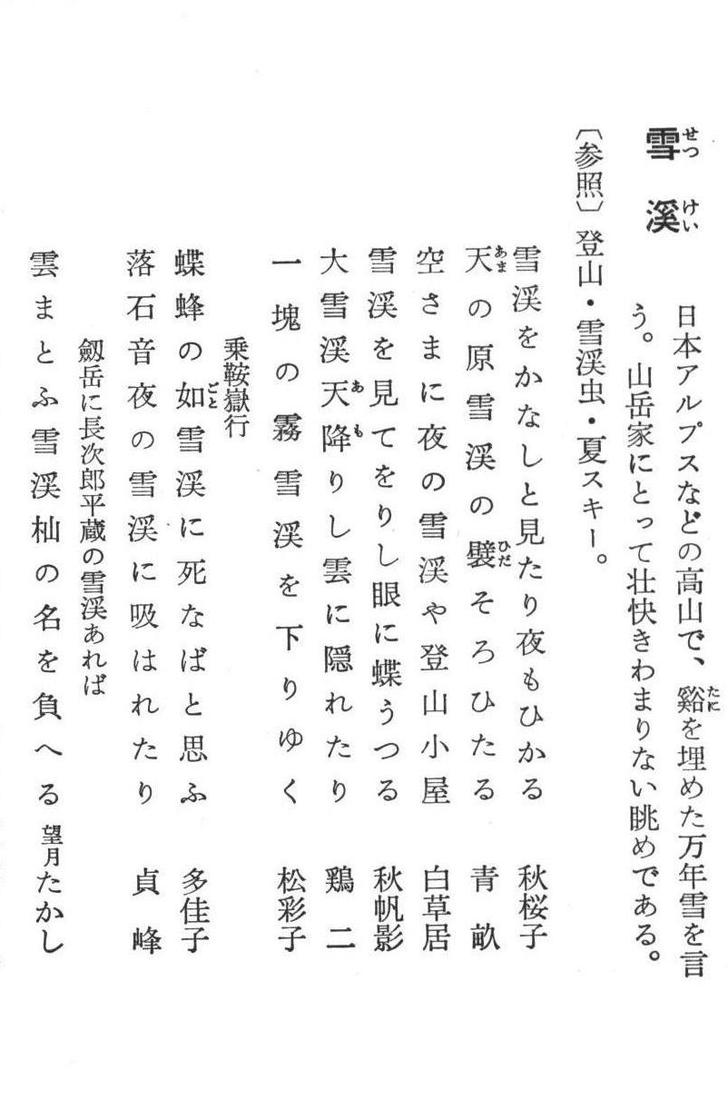 雪溪
せつけい
日本アルプスなどの高山で、谿を埋めた万年雪を言
たに
う。山岳家にとって壮快きわまりない眺めである。
〔参照〕登山・雪渓虫・夏スキー。
雪渓をかなしと見たり夜もひかる 秋桜子
天の原雪渓の襞そろひたる 青畝
あま ひだ
空さまに夜の雪渓や登山小屋 白草居
雪渓を見てをりし眼に蝶うつる 秋帆影
大雪渓天降りし雲に隠れたり 鶏二
あも
一塊の霧雪渓を下りゆく 松彩子
乗鞍嶽行
蝶蜂の如雪渓に死なばと思ふ 多佳子
ごと
落石音夜の雪渓に吸はれたり 貞峰
劔岳に長次郎平蔵の雪渓あれば
雲まとふ雪渓杣の名を負へる 望月たかし